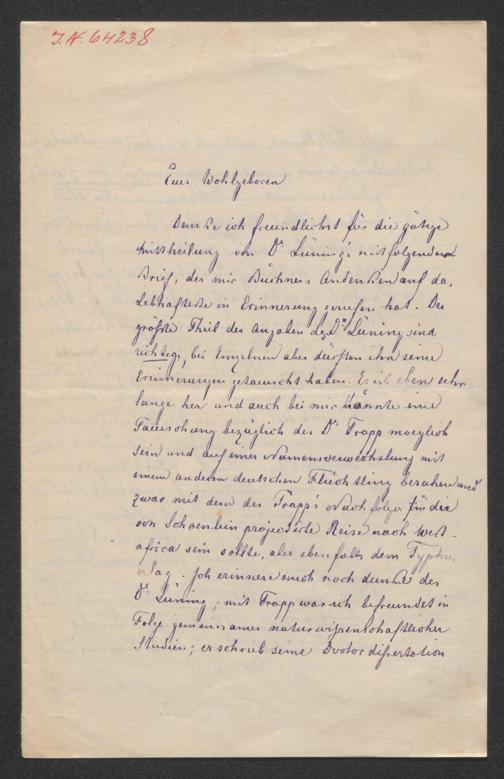 I.N. 64238
Euer Wohlgeboren
Danke ich freundlichst für die gütige
Mittheilung von Dr Lüning's mitfolgenden
Brief, der mir Büchners Andenken auf das
Lebhafteste in Erinnerung gerufen hat. Der
größte Theil der Angaben des Drs Lüning sind
richtig, bei Einzelnen aber dürften ihn seine
Erinnerungen getaeuscht haben. Es ist eben sehr
lange her und auch bei mir könnte eine
Taeuschung bezüglich des Dr Trapp moeglich
sein und auf einer Namensverwechslung mit
einem anderen deutschen Flüchtling beruhen und
zwar mit dem der Trapp's Nachfolger für die
von Schoenlein projectirte Reise nach West-
africa sein sollte, aber ebenfalls dem Typhus
erlag. Ich erinnere mich noch dunkel des
Dr Lüning; mit Trapp war ich befreundet in
Folge gemeinsamer naturwissenschaftlicher
Studien; er schrieb seine Doctordissertation